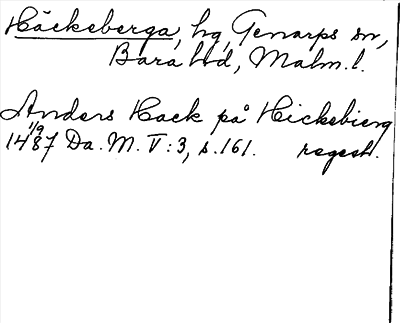 Häckeberga, hg, Genarps sn,
Bara hd, Malm. l.
Anders Hack på Hickebierg
1/9
1487 Da. M. V:3, s. 161. regest.